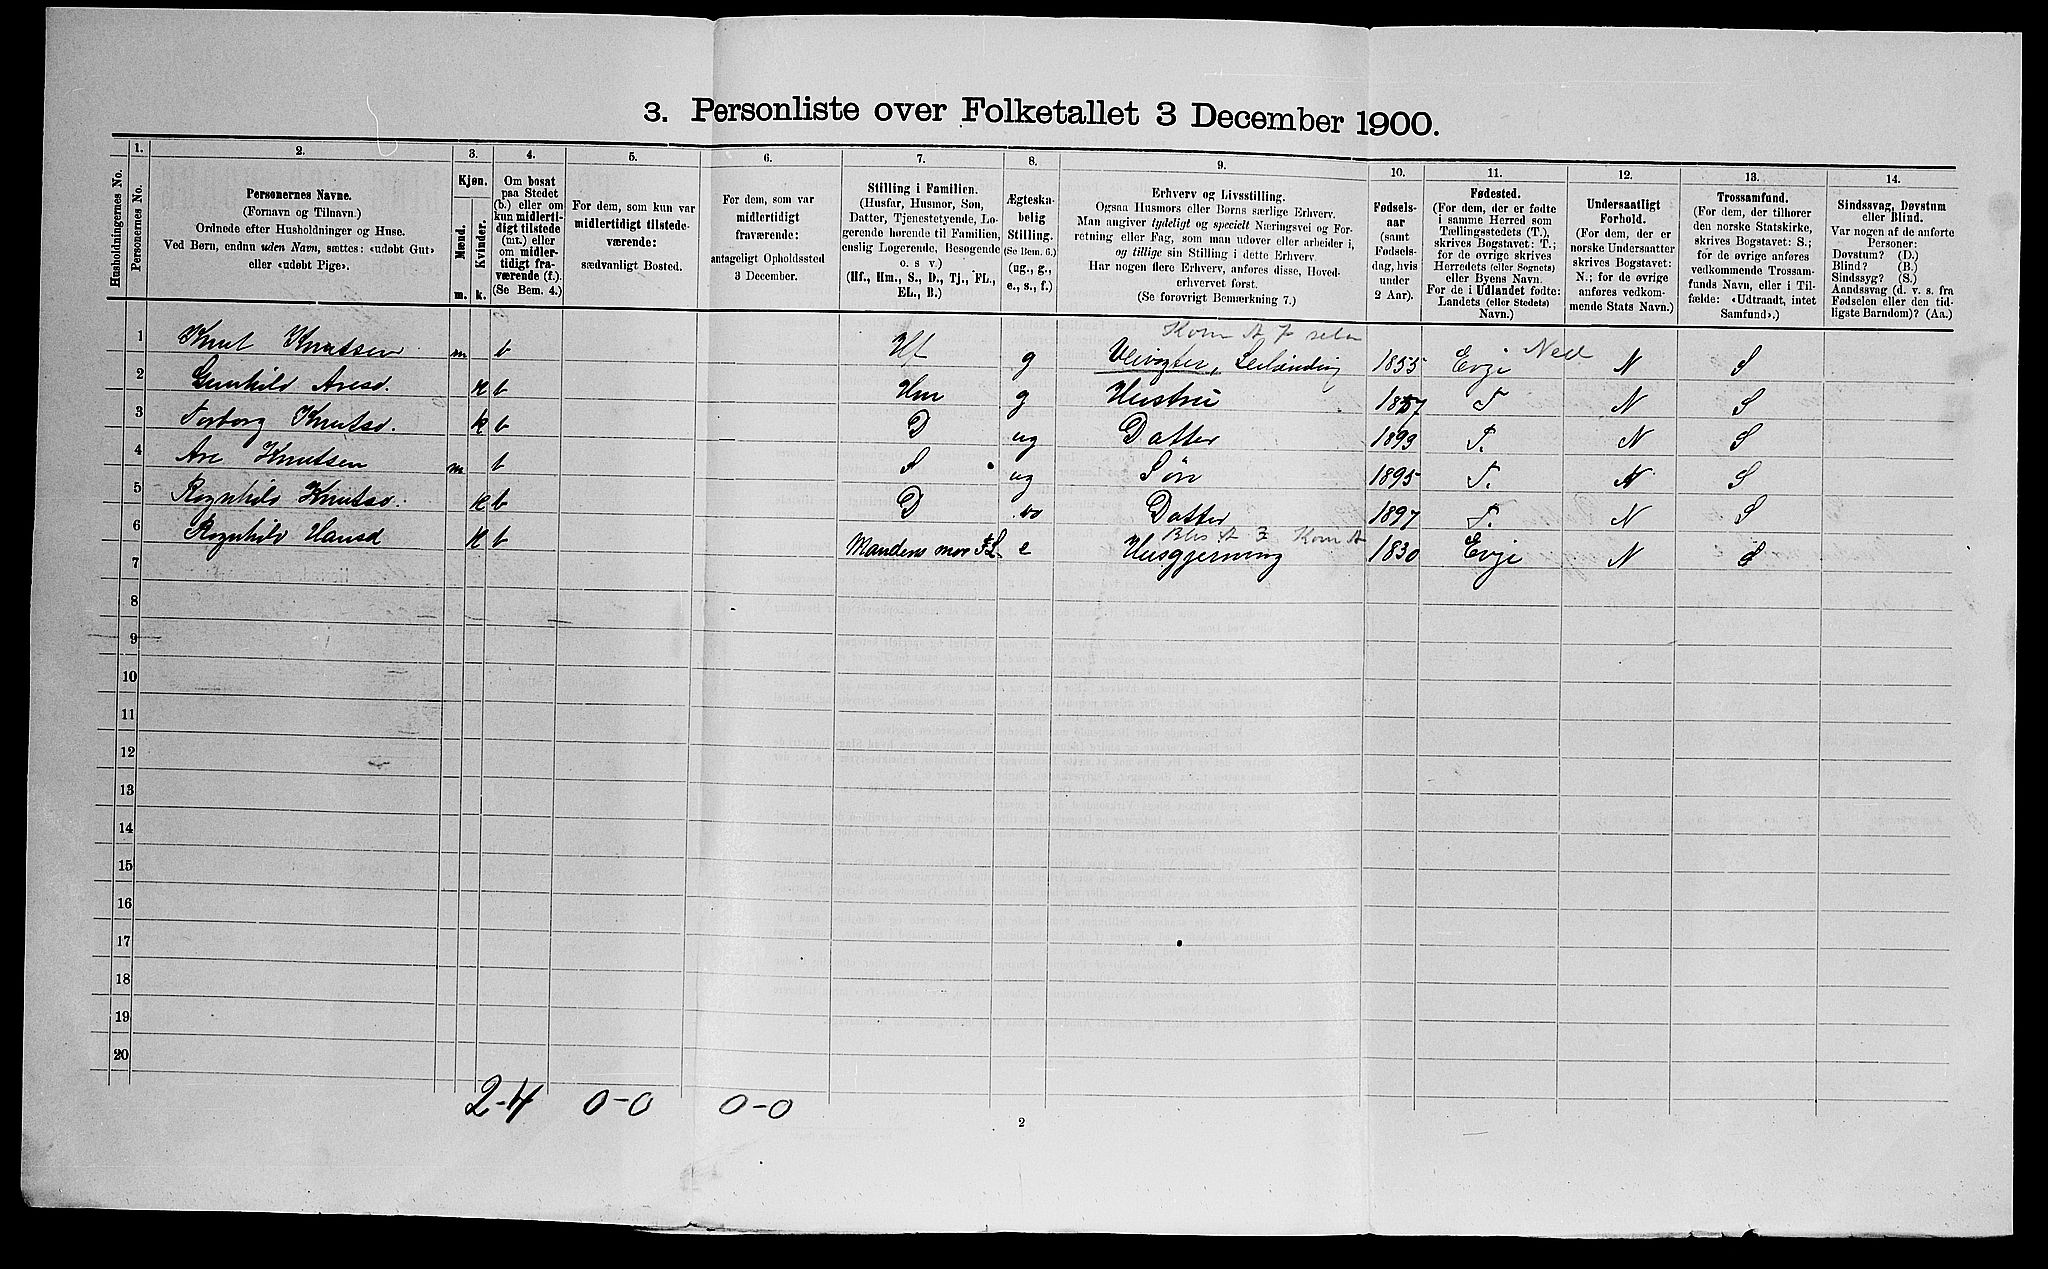 3. Personliste over Folketallet 3 December 1900.
1. 2. 3. 4. 5. 6. 7. 8. 9. 10. 11. 12. 13. 14.
Husholdningernes No.
Personernes No.
Personernes Navne.
(Fornavn og Tilnavn.)
Ordnede efter Husholdninger og Huse.
Ved Børn, endnu uden Navn, sættes: «udøbt Gut»
eller «udøbt Pige».
Kjøn.
Mænd.
Kvinder.
m. k.
Om bosat
paa Stedet
(b.) eller om
kun midlerti-
digt tilstede
(mt.) eller
om midler-
tidigt fra-
værende (f.).
(Se Bem. 4.)
For dem, som kun var
midlertidigt tilstede-
værende:
sædvanligt Bosted.
For dem, som var
midlertidigt
fraværende:
antageligt Opholdssted
3 December.
Stilling i Familien.
(Husfar, Husmor, Søn,
Datter, Tjenestetyende, Lo-
gerende hørende til Familien,
enslig Logerende, Besøgende
o. s v.)
(Hf., Hm., S., D., Tj., FL.,
EL., B.)
Ægteska-
belig
Stilling.
(Se Bem. 6.)
(ug., g.,
e., s., f.)
Erhverv og Livsstilling.
Ogsaa Husmors eller Børns særlige Erhverv.
Man angiver tydeligt og specielt Næringsvei og For-
retning eller Fag, som man udøver eller arbeider i,
og tillige sin Stilling i dette Erhverv.
Har nogen flere Erhverv, anføres disse, Hoved-
erhvervet først.
(Se forøvrigt Bemærkning 7.)
Fødsels-
aar
(samt
Fødsels-
dag, hvis
under
2 Aar).
Fødested.
(For dem, der er fødte
i samme Herred som
Tællingsstedets (T.),
skrives Bogstavet: T.;
for de øvrige skrives
Herredets (eller Sognets)
eller Byens Navn.
For de i Udlandet fødte:
Landets (eller Stedets)
Navn.)
Undersaatligt
Forhold.
(For dem, der er
norske Undersaatter
skrives Bogstavet:
N.; for de øvrige
anføres vedkom-
mende Stats Navn.)
Trossamfund.
(For dem, der tilhører
den norske Statskirke,
skrives Bogstavet: S.;
for de øvrige anføres
vedkommende Trossam-
funds Navn, eller i Til-
fælde: «Udtraadt, intet
Samfund».)
Sindssvag, Døvstum
eller Blind.
Var nogen af de anførte
Personer:
Døvstum? (D.)
Blind? (B.)
Sindssyg? (S.)
Aandssvag (d. v. s. fra
Fødselen eller den tid-
ligste Barndom)? (Aa.)
Korn A
1 Knut Knutsen m b Hf g 1855 Evje N S
2 Gunhild Aresd. k b Hm g Hustru 1857 T N S
3 Torborg Knutsd. k b D ug Datter 1893 T. N S
4 Are Knutsen m b S ug Søn 1895 T. N S
5 Ragnhild Knutsd. k b D Datter 1897 T. N S
Korn A
6 Ragnhild Hansd k b Mandens mor FL e Husgjerning 1830 Evje N S
7
8
9
10
11
12
13
14
15
16
17
18
19
20
2-4 0-0 0-0
2